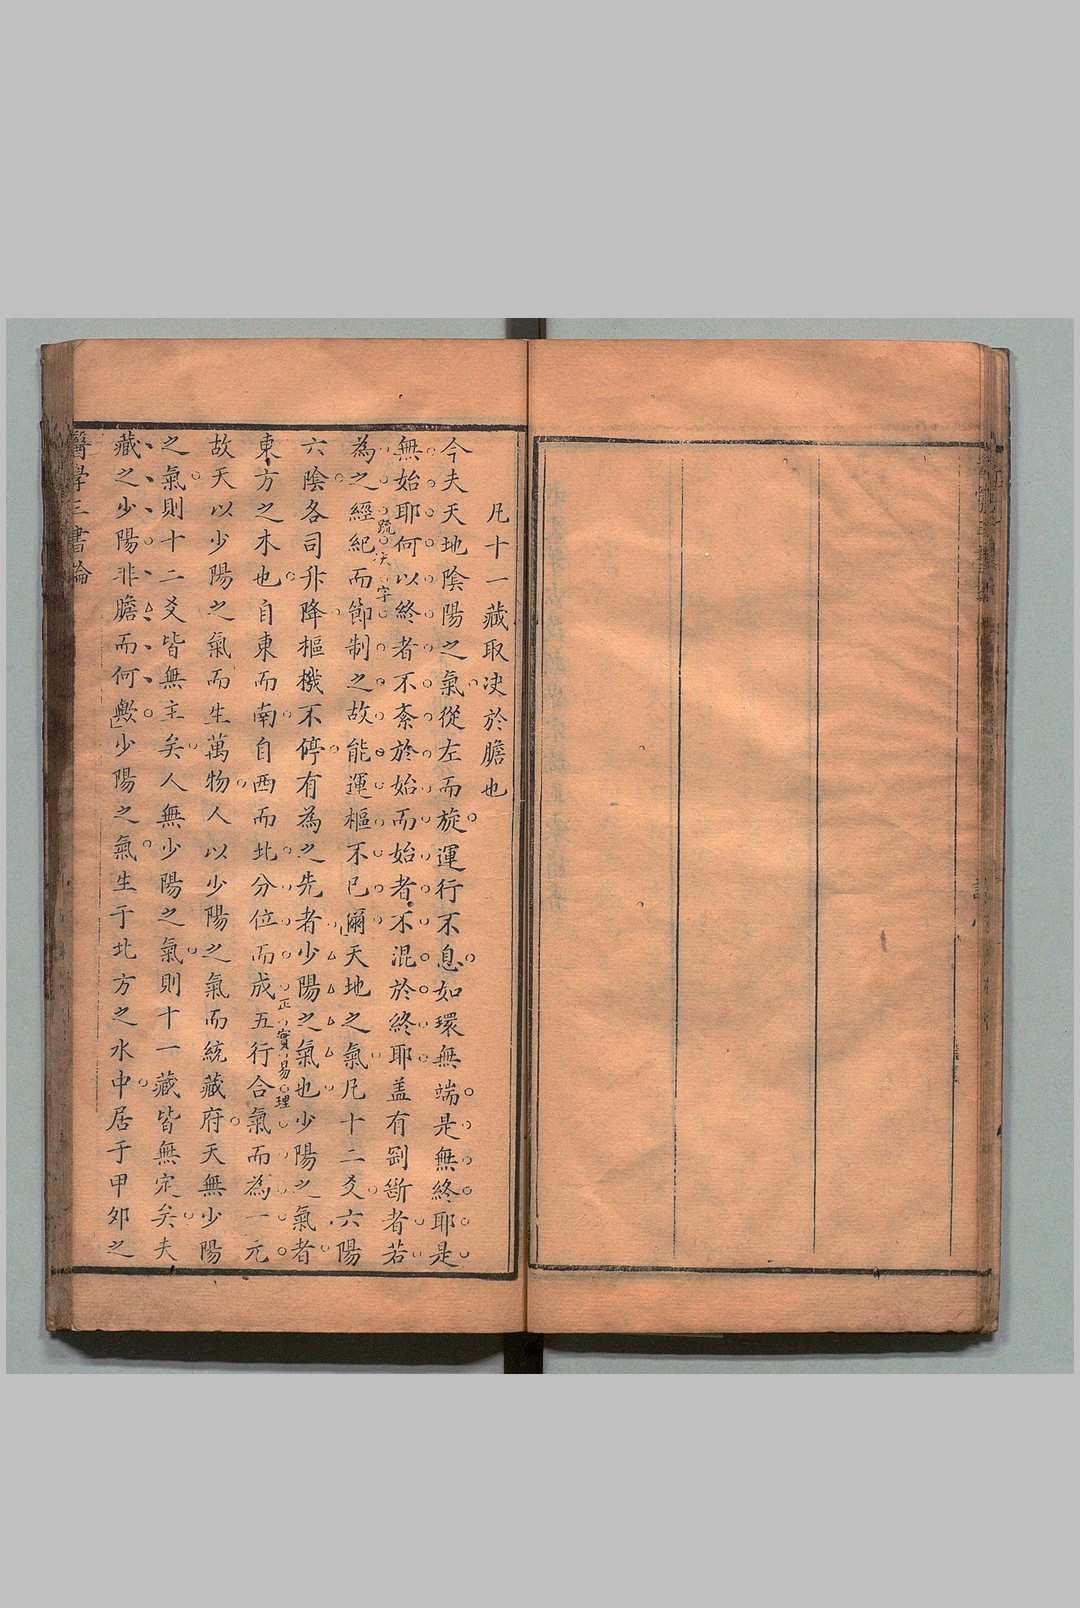 凡十一藏取決於膽也
今夫天地陰陽之氣從左而旋運行不息如環無端是無終耶是
無始耶何以終者不紊於始而始者不混於終耶盖有剖斷者若
為之經紀而節制之故能運樞不已爾天地之氣凡十二爻六陽
疏決字
六陰各司升降樞機不停有為之先者少陽之氣也少陽之氣者
東方之木也自東而南自西而北分位而成五行合氣而為一元
正實易理
故天以少陽之氣而生萬物人以少陽之氣而統藏府天無少陽
之氣則十二爻皆無主矣人無少陽之氣則十一藏皆無定矣夫
藏之少陽非膽而何歟少陽之氣生于北方之水中居于甲夘之
醫學三書論